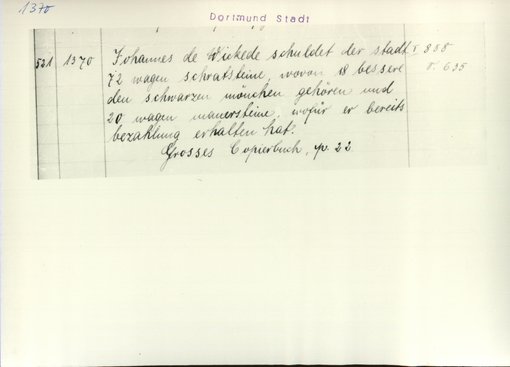 1370
Dortmund Stadt
521 1370 Johannes de Wickede schuldet der stadt r 858
72 wagen schratsteine, wovon 18 bessere r. 635
den schwarzen mönchen gehören und
20 wagen mauersteine, wofür er bereits
bezahlung erhalten hat.
Grosses Copierbuch, p. 22